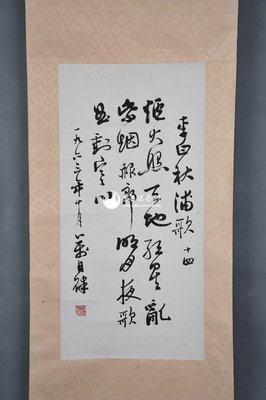 李白秋浦歌 十四
炉火照天地红星乱
紫烟赧郎明月夜歌
曲动寒川
一九六三年十月